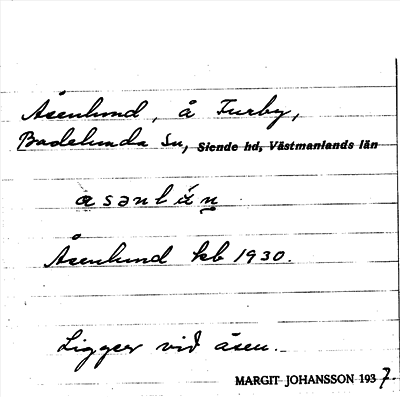 Åsenlund, å Furby,
Badelunda Sn, Siende hd, Västmanlands län
Åsenlund kb 1930.
Ligger vid åsen.
MARGIT JOHANSSON 1937.